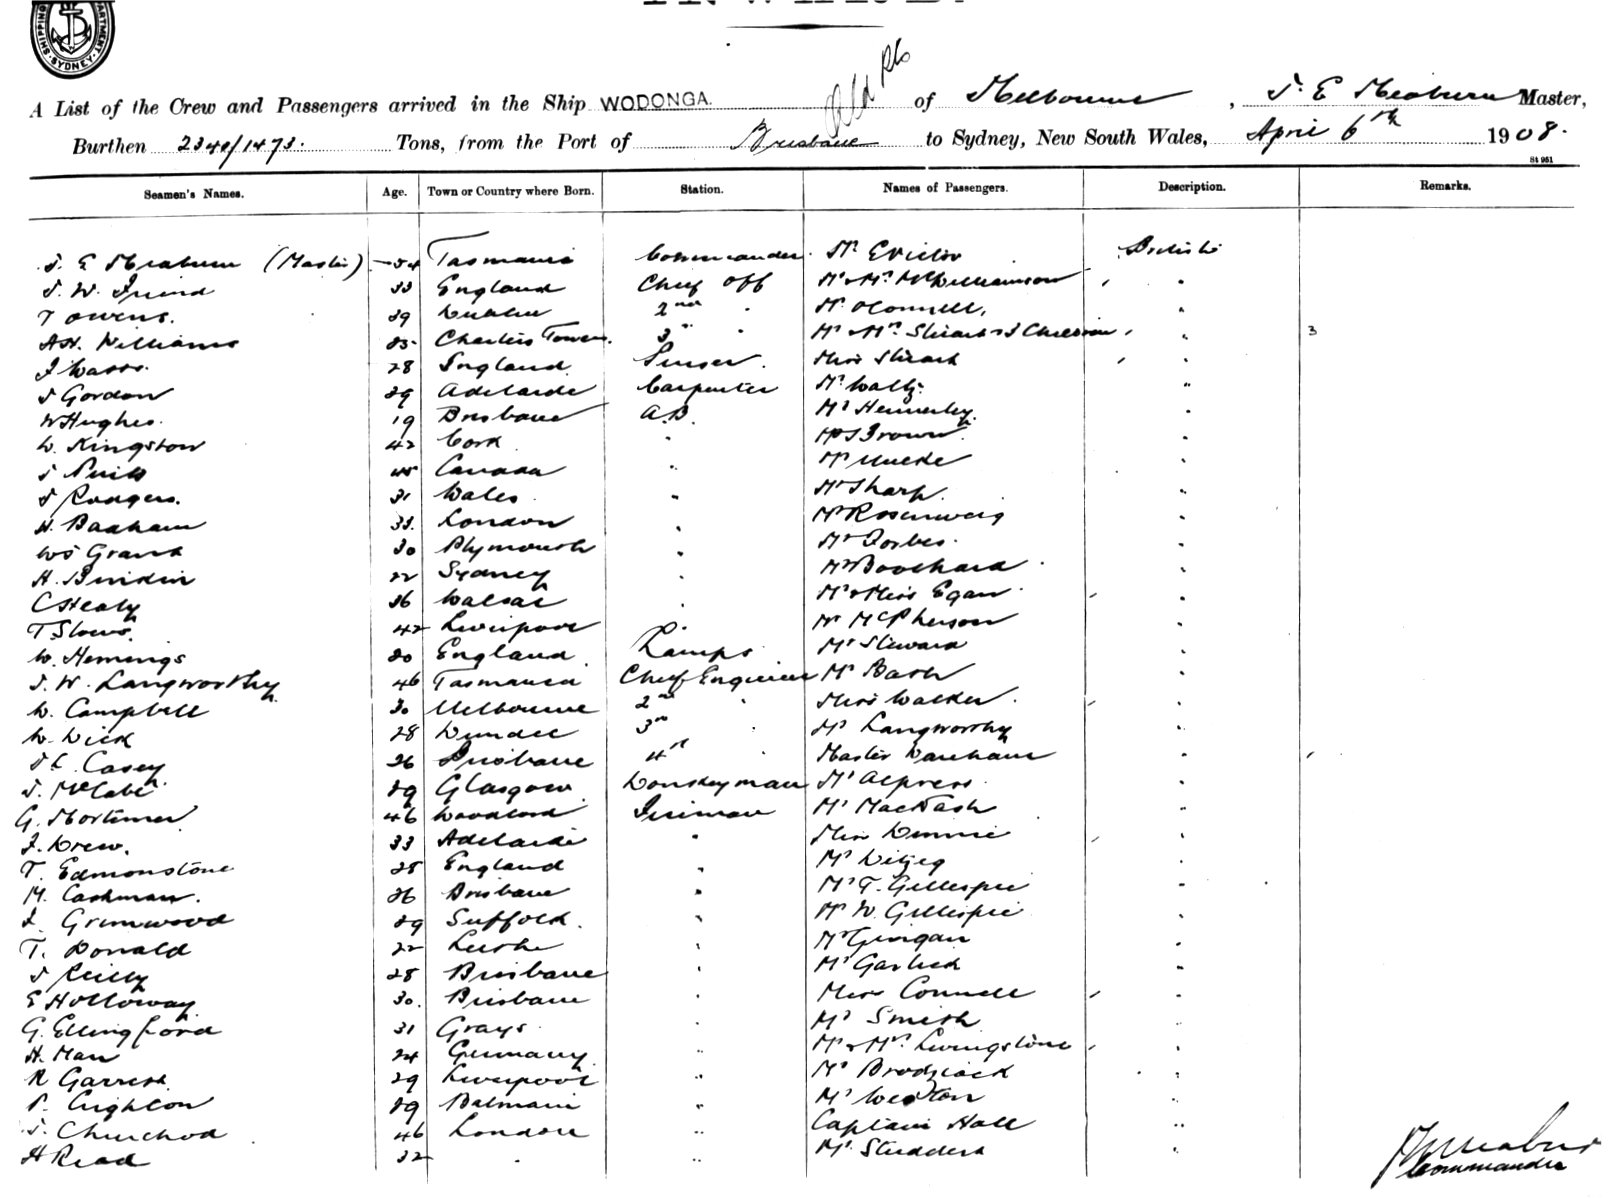 SHIPPING DEPARTMENT. SYDNEY.
INWARD.
A List of the Crew and Passengers arrived in the Ship WODONGA. of Melbourne, J. E. Meaburn Master,
Burthen 2340/1473. Tons, from the Port of Brisbane to Sydney, New South Wales, April 6th 1908.
St 951
Seamen's Names. Age. Town or Country where Born. Station. Names of Passengers. Description. Remarks.
J. E Meaburn (Master) 54 Tasmania Commander Mr Evictor British
J. W. Friend 33 England Chief Off Mr & Mrs McWilliamson "
T Owens. 39 2nd " Mr OConnell, "
A.H. Williams 25 Charters Towers. 3rd " Mr & Mrs Stuart & 3 Children " 3
J Wass. 28 England Purser Miss Stuart "
J Gordon 39 Adelaide Carpenter Mr Waltz "
W Hughes. 19 Brisbane A.B. Mr Hennerley. "
W. Kingston 42 Cork " Mr J Brown "
J 45 Canada " Mr "
J Rodgers. 31 Wales " Mr Sharp. "
H. Badham 33. London " Mr Rosenweig "
WJ Grant 30 Plymouth " Mr Forbes. "
H. 22 Sydney " Mr Bouchard "
C Healy 36 " Mr & Miss Egan "
T Slows. 42 Liverpool " Mr McPherson "
W. Hemings 30 England Lamps Mr Steward "
J. W. Langworthy 46 Tasmania Chief Engineer Mr Bash "
W. Campbell 30 Melbourne 2nd " Miss Walker "
W. Dick 28 Dundee 3rd " Mr Langworthy "
J C. Casey 26 Brisbane 4th " Master Wareham "
J. McCabe 39 Glasgow Donkeyman Mr Alpress "
G. Mortimer 46 Woodford Fireman Mr MacTash "
J. Drew. 33 Adelaide " Miss Dennie "
T. Edmonstone 25 England " Mr "
M. Cashman. 26 Brisbane " Mr T. Gillespie "
J. Grimwood 39 Suffolk. " Mr W. Gillespie "
T. Donald 22 " Mr "
J Reilly 28 Brisbane " Mr Garlick "
E Holloway 30. Brisbane " Miss Connell "
G. Ellingford 31 Grays " Mr Smith "
H. Man 24 Germany " Mr & Mrs Livingstone "
R Garrett 29 Liverpool " Mr Brodziack "
P. Crighton 39 Balmain " Mr Weston "
J. Churchod 46 London " Captain Hall "
H Read 32 " " Mr Studdert "
Commander